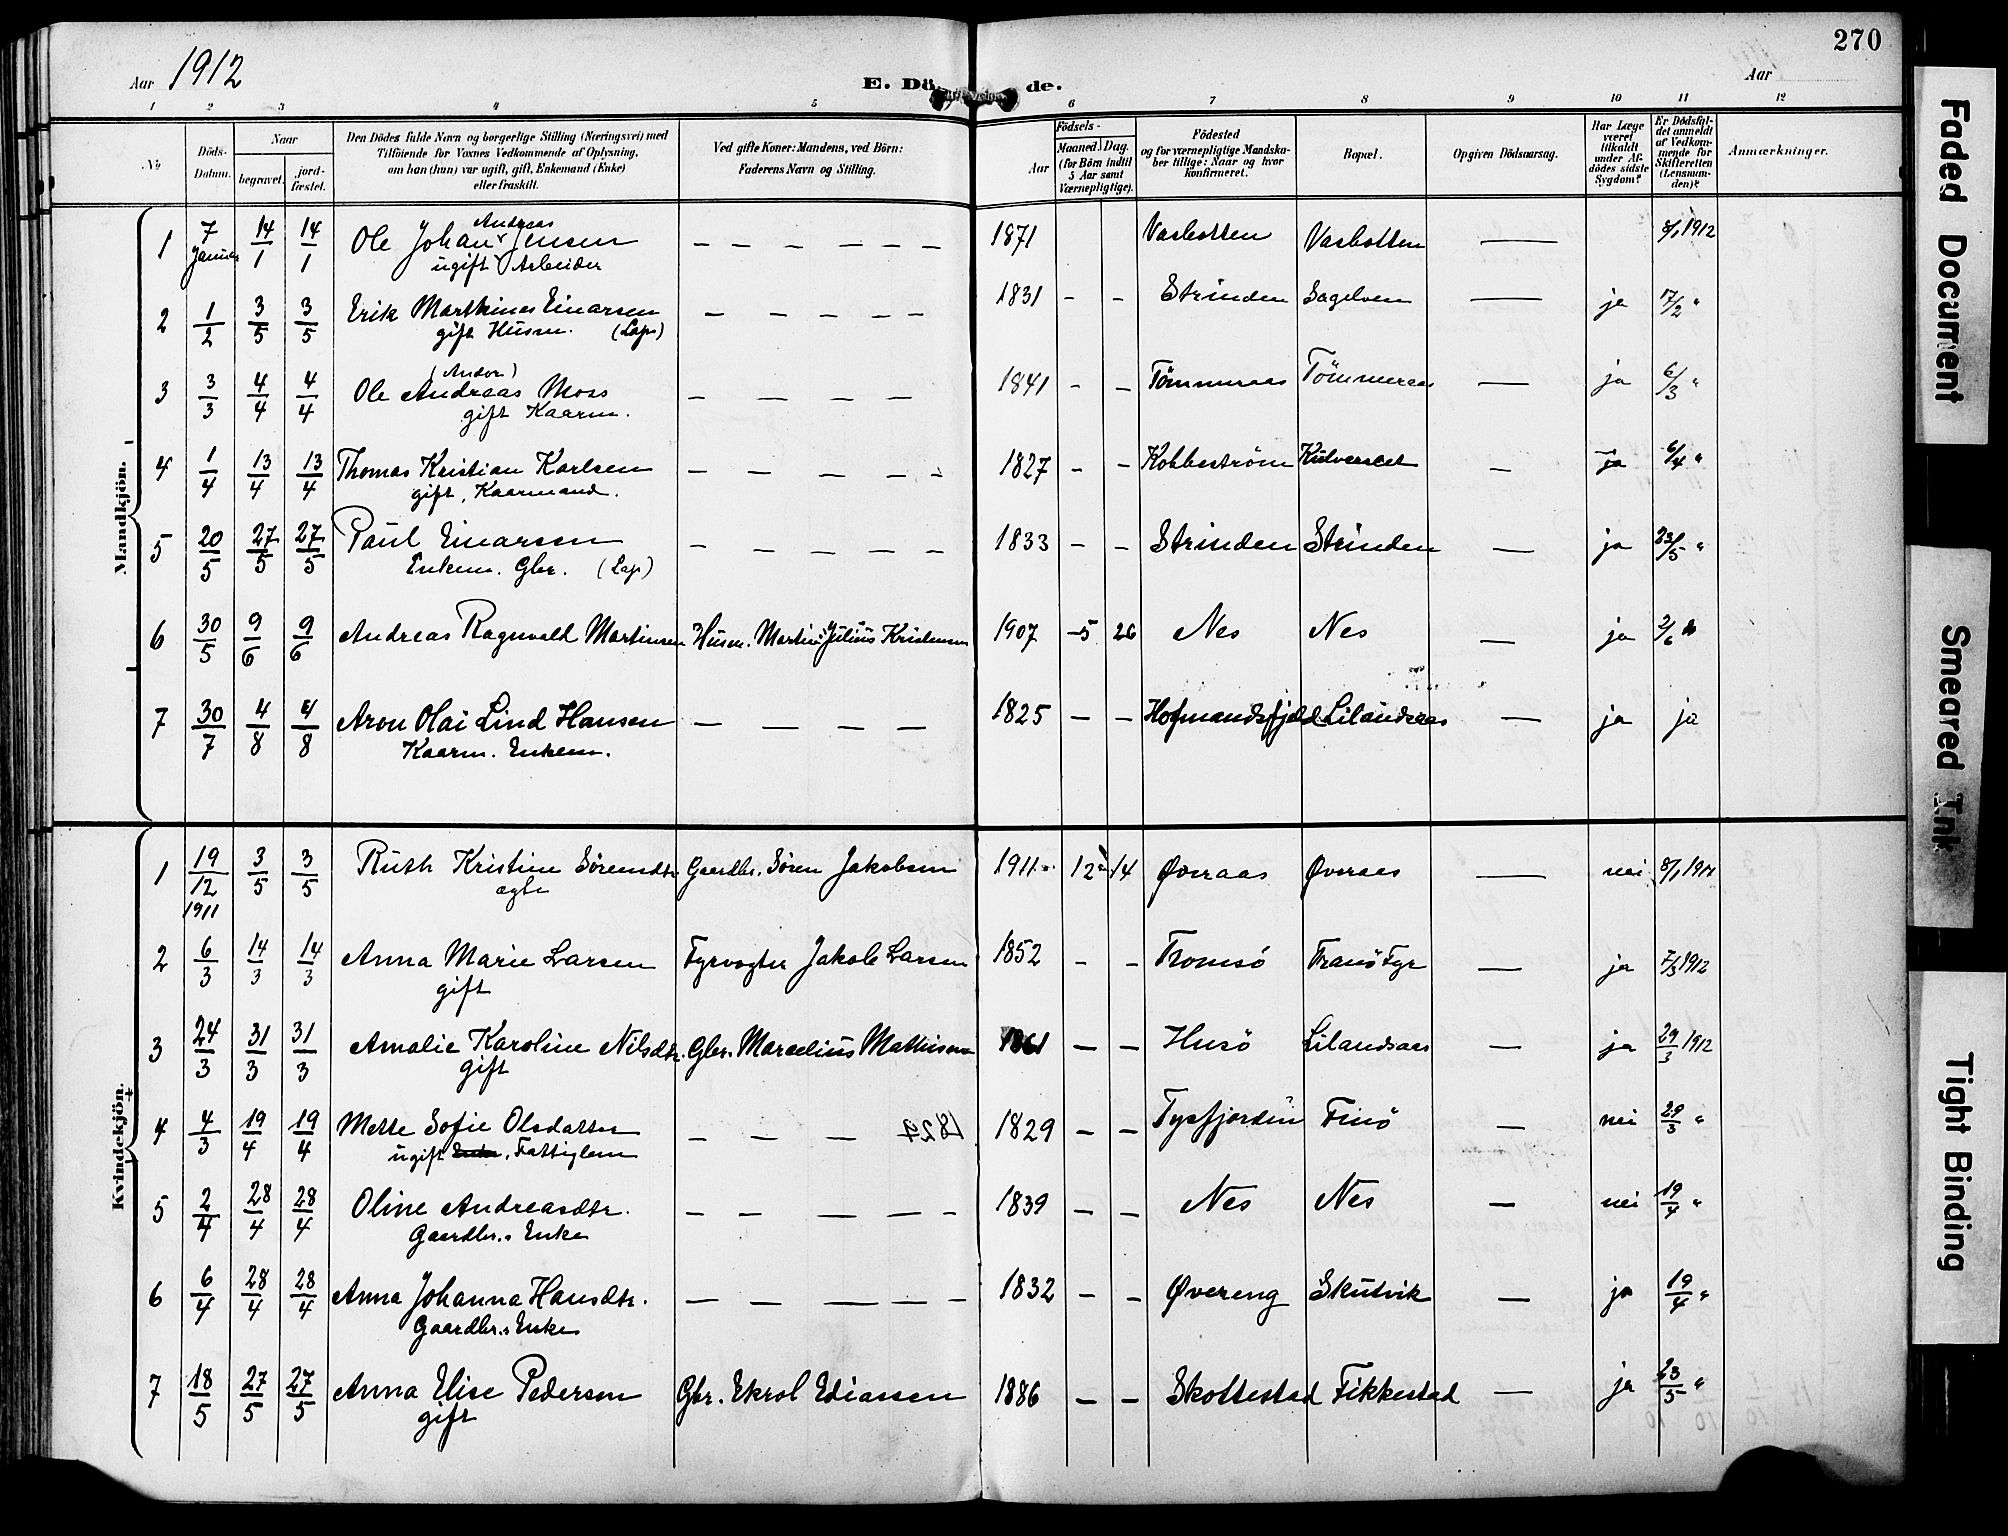 270
Aar 1912
E. Dö de.
Aar
1 2 3 4 5 6 7 8 9 10 11 12
No
Döds-Datum.
Naar
begravet.
jord-fæstet.
Den Dödes fulde Navn og borgerlige Stilling (Næringsvei) med
Tilföiende for Voxnes Vedkommende af Oplysning,
om han (hun) var ugift, gift, Enkemand (Enke)
eller fraskilt.
Ved gifte Koner: Mandens, ved Börn:
Faderens Navn og Stilling.
Födsels-
Aar
Maaned. Dag.
(for Börn indtil
5 Aar samt
Værnepligtige).
Födested
og for værnepligtige Mandska-
ber tillige: Naar og hvor
konfirmeret.
Bopæl.
Opgiven Dödsaarsag.
Har Læge
været
tilkaldt
under Af-
dödes sidste
Sygdom?
Er Dödsfal-
det anmeldt
af Vedkom-
mende for
Skifteretten
(Lensman-
den)?
Anmærkninger.
Mandkjön.
Andreas
1 7 Januar 14/1 14/1 Ole Johan Jensen — — — — — — 1871 Vasbotten Vasbotten — 8/1 1912
ugift Arbeider
2 1/2 3/5 3/5 Erik Marthines Einarsen — — — — — 1831 - - Strinden Sagelven — ja 17/2 "
gift Husm. (Lap)
(Andor)
3 3/3 4/4 4/4 Ole Andreas Moss — — — — — 1841 - - Tömmeraas Tömmeraas — ja 6/3 "
gift Kaarm.
4 1/4 13/4 13/4 Thomas Kristian Karlsen — — — — — 1827 - - Kobbeström — ja 6/4 "
gift, Kaarmand.
5 20/5 27/5 27/5 Paul Einarsen — — — — — 1833 - - Strinden Strinden — ja 23/5 "
Enkem. Gbr. (Lap)
6 30/5 9/6 9/6 Andreas Ragnvald Martinsen Husm. Martin Julius Kristensen 1907 5 26 Nes Nes — ja 2/6 "
7 30/7 4/8 4/8 Aron Olai Lind Hansen — — — — 1825 — — Hofmandsfjeld Lilandsaas — ja ja
Kaarm. Enkem.
Kvindekjön.
1 19/12 1911 3/5 3/5 Ruth Kristine Sørensdtr Gaardbr. Sören Jakobsen 1911 12 14 Øveraas Øveraas — nei 8/1 1912
ægte
2 6/3 14/3 14/3 Anna Marie Larsen Fyrvogter Jakob Larsen 1852 - - Tromsö Tranö Fyr — ja 7/3 1912
gift
3 24/3 31/3 31/3 Amalie Karoline Nilsdtr. Gbr. Marcelius Mathisen 1861 — — Husö Lilandsaas — ja 29/3 1912
gift
4 4/3 19/4 19/4 Mette Sofie Olsdatter — — — 1829 — — Tysfjorden Finö — nei 29/3 "
ugift Enke, Fattiglem
5 2/4 28/4 28/4 Oline Andreasdtr. — — — — — 1839 — — Nes Nes — nei 19/4 "
Gaardbr.s Enke
6 6/4 28/4 28/4 Anna Johanna Hansdtr. — — — — — 1832 — — Övereng Skutvik — ja 19/4 "
Gaardbr.s Enke
7 18/5 27/5 27/5 Anna Elise Pedersen Gbr. Ekrol Ediassen 1886 — — Skottestad Fikkestad — ja 23/5 "
gift
Faded Document
Smeared Ink
Tight Binding